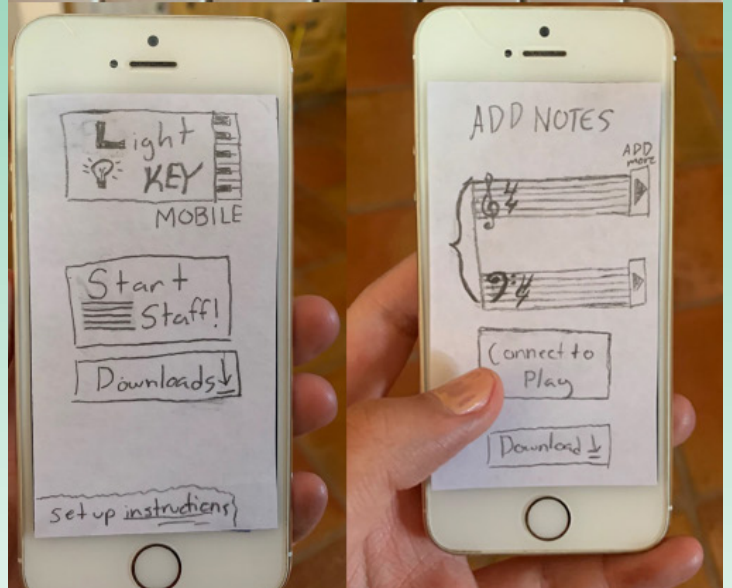 Light
KEY
MOBILE
Start
Staff!
Downloads
set up instructions
ADD NOTES
ADD
more
4
4
4
4
Connect to
Play
Download